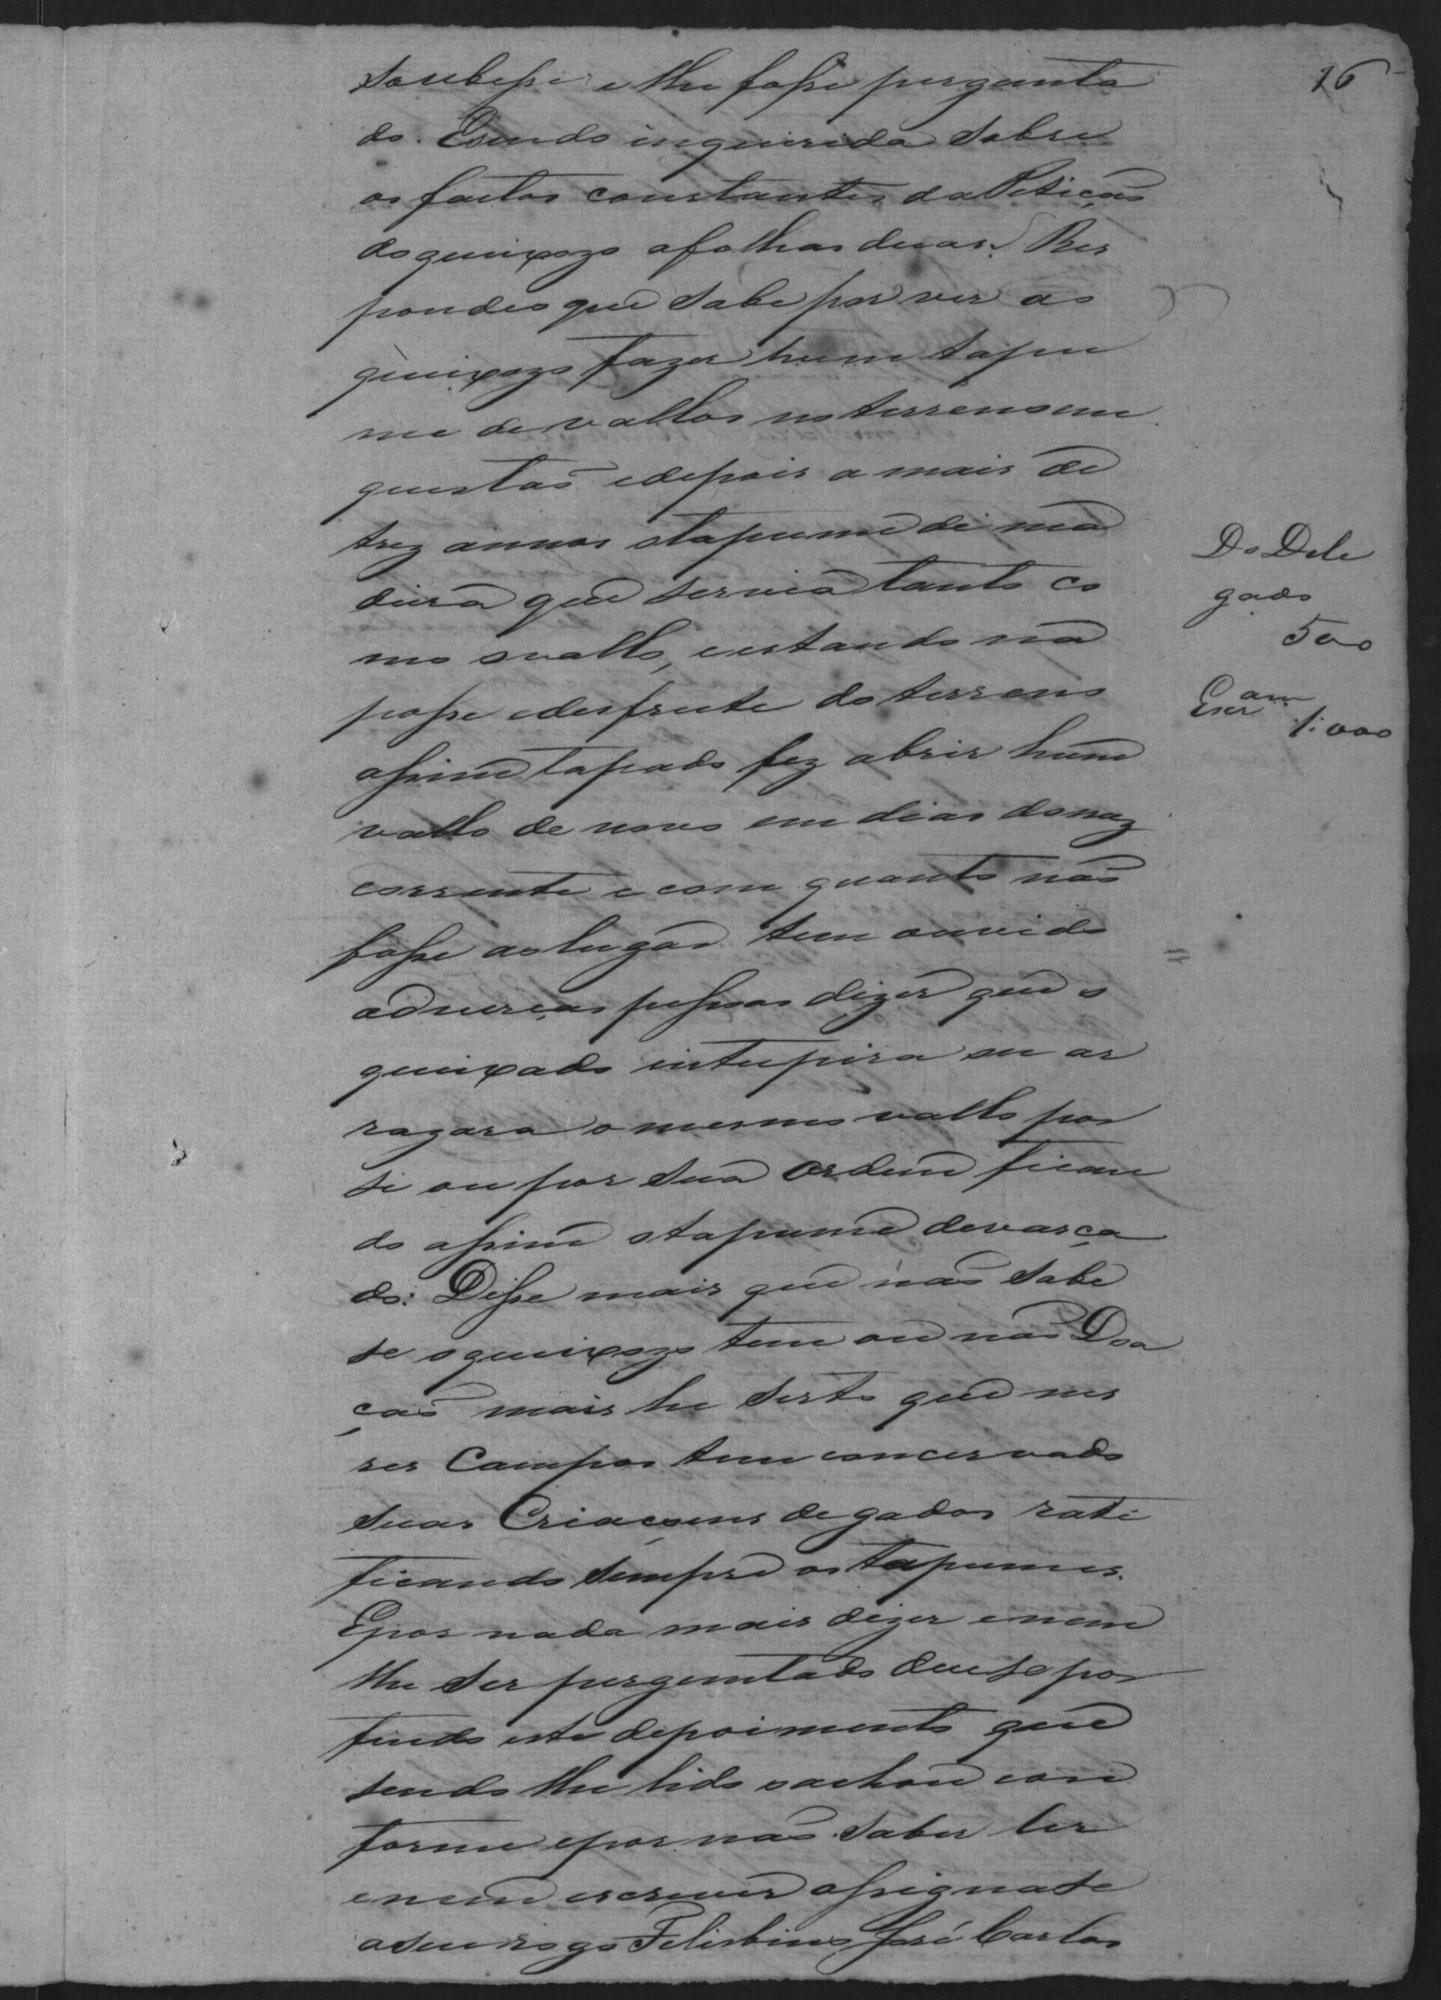 16
soubesse e lhe fosse pergunta
do. E sendo inquerida sobre
os factos constantes da Petição
do queixozo a folhas duas. Res
pondeo que sabe por ver ao
queixozo fazer hum tapu
me de vallos no terreno em
questão e depois a mais de
trez annos o tapume de ma
deira que servia tanto co
mo o vallo, e estando na
posse e desfrute do terreno
assim tapado fez abrir hum
vallo de novo em dias do mez
corrente e com quanto não
fosse ao lugar tem ouvido
a diverças pessoas dizer que o
queixado intupira ou ar
razara o mesmo vallo por
si ou por sua ordem fican
do assim o tapume devaça
do: Disse mais que não sabe
se o queixozo tem ou não Doa
ção mais he serto que nes
ses Campos tem concervado
suas Criaçoens de gados rati
ficando sempre os tapumes.
E por nada mais dizer e nem
lhe ser perguntado deu se por
findo este depoimento que
sendo lhe lido o achou con
forme e por não saber ler
e nem escrever assigna se
a seu rogo Felisbino José Carlos
Do Dele
gado
500
Escram
1:000